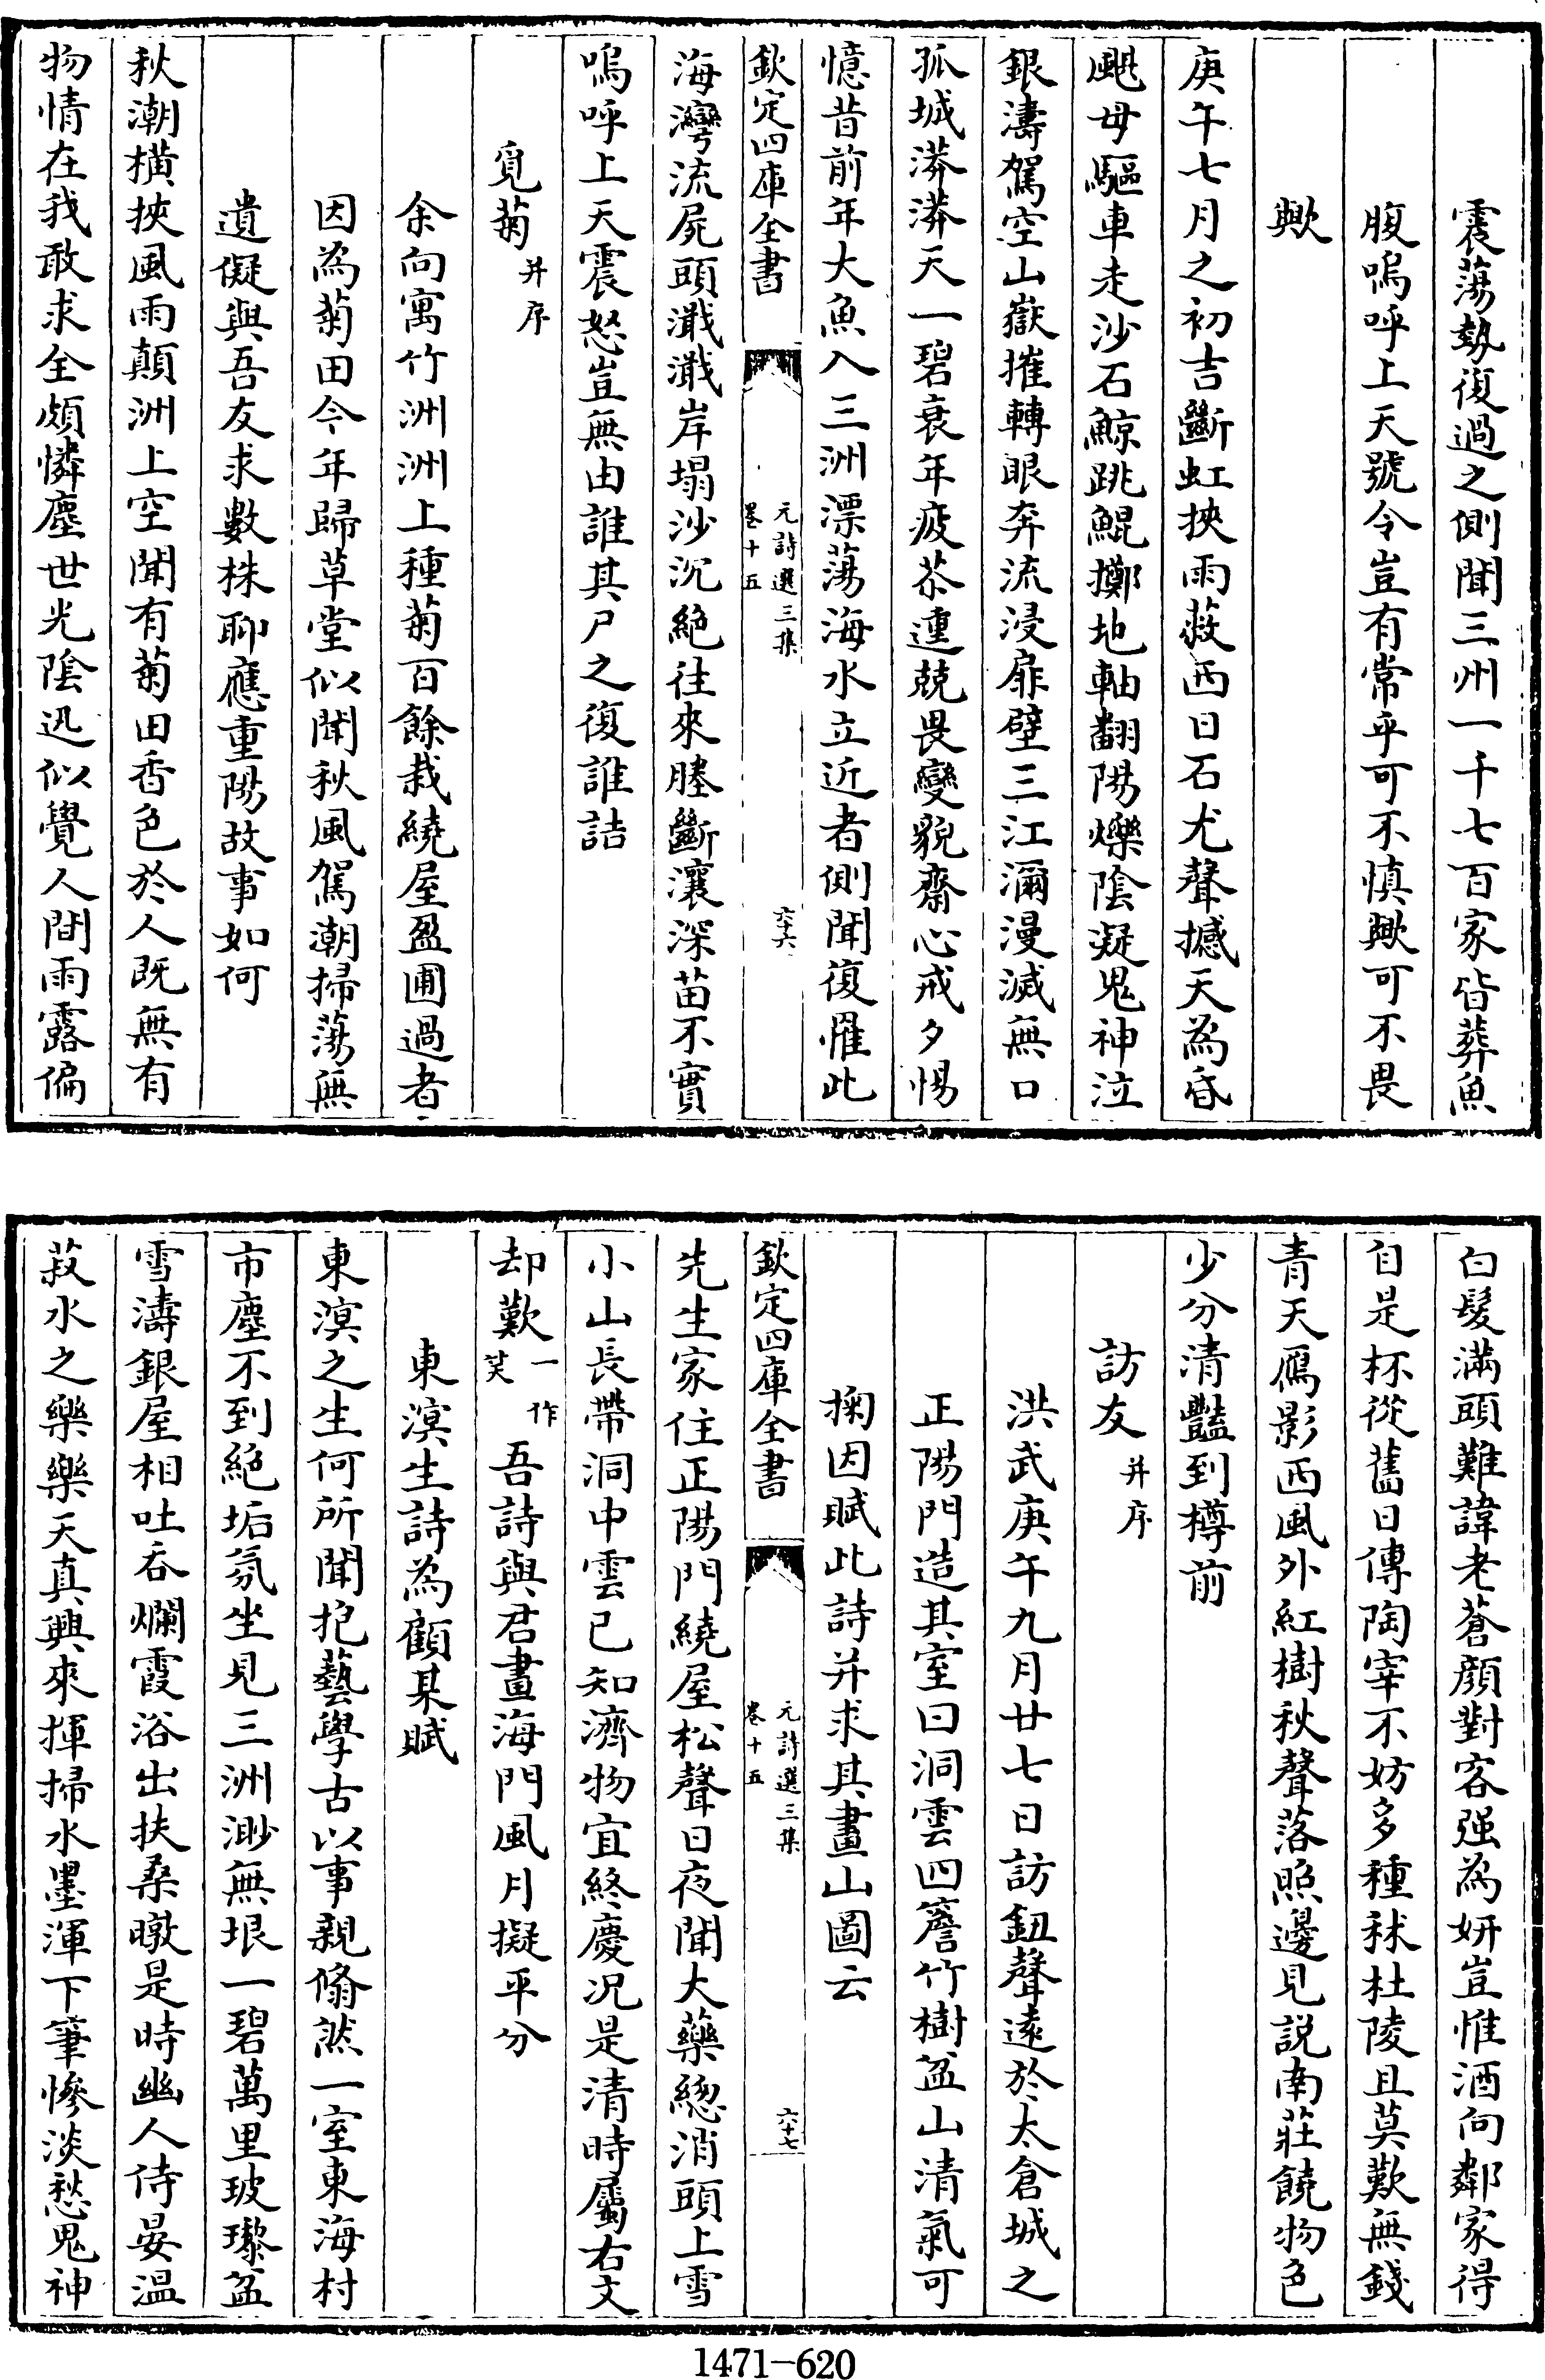 震蕩勢復過之側聞三州一千七百家皆葬魚
腹嗚呼上天號令豈有常乎可不慎歟可不畏
歟
庚午七月之初吉斷虹挾雨菽西日石尤聲撼天為昏
颶母驅車走沙石鯨跳鯤擲地軸翻陽爍陰凝鬼神泣
銀濤駕空山嶽摧轉眼奔流浸扉壁三江瀰漫滅無口
孤城漭漭天一碧衰年疲苶連兢畏變貌齋心戒夕惕
憶昔前年大魚入三洲漂蕩海水立近者側聞復罹此
欽定四庫全書 元詩選三集 卷十五 六十六
海灣流屍頭濈濈岸塌沙沉絶往來塍斷瀼深苗不實
嗚呼上天震怒豈無由誰其尸之復誰詰
覓菊并序
余向寓竹洲洲上種菊百餘栽繞屋盈圃過者
因為菊田今年歸草堂似聞秋風駕潮掃蕩無
遺儗與吾友求數株聊應重陽故事如何
秋潮横挾風雨顛洲上空聞有菊田香色於人既無有
物情在我敢求全頗憐塵世光陰迅似覺人間雨露偏
白髮滿頭難諱老蒼顔對客强為妍豈惟酒向鄰家得
自是杯從舊日傳陶宰不妨多種秫杜陵且莫歎無錢
青天鴈影西風外紅樹秋聲落照邊見説南莊饒物色
少分清豔到樽前
訪友并序
洪武庚午九月廿七日訪鈕聲遠於太倉城之
正陽門造其室曰洞雲四簷竹樹盆山清氣可
掬因賦此詩并求其畫山圖云
欽定四庫全書 元詩選三集 卷十五 六十七
先生家住正陽門繞屋松聲日夜聞大藥緫消頭上雪
小山長帶洞中雲已知濟物宜終慶况是清時屬右文
却歎一作笑吾詩與君畫海門風月擬平分
東溟生詩為顧某賦
東溟之生何所聞抱藝學古以事親翛然一室東海村
市塵不到絶垢氛坐見三洲渺無垠一碧萬里玻瓈盆
雪濤銀屋相吐吞爛霞浴出扶桑暾是時幽人侍晏温
菽水之樂樂天真興來揮掃水墨渾下筆慘淡愁鬼神
1471-620